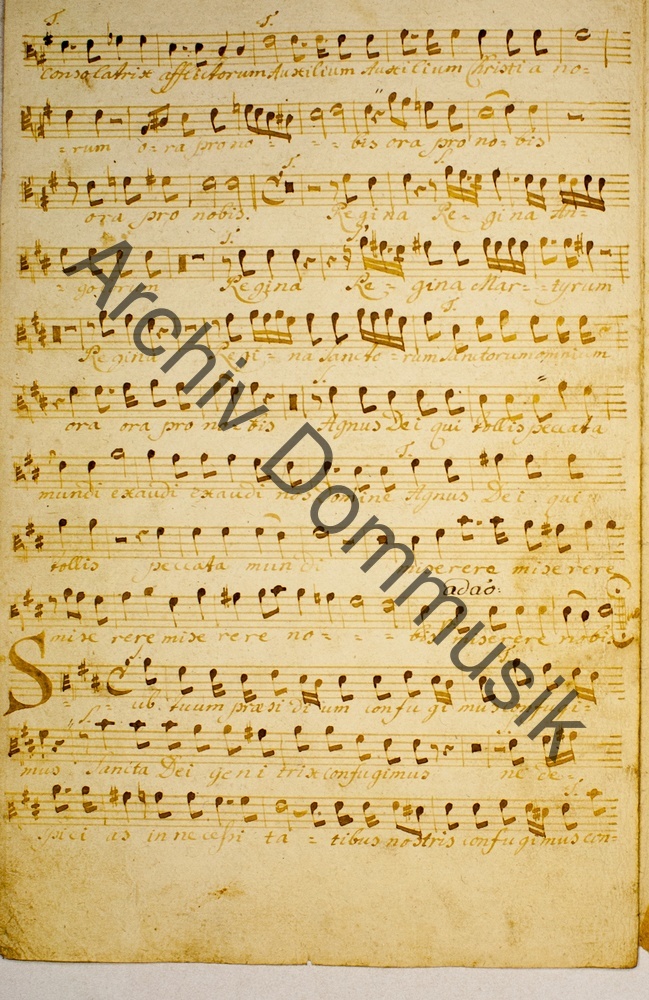 Consolatrix afflictorum Auxilium Auxilium Christia no=
=rum o=ra pro no= - - - bis ora pro no= bis
ora pro nobis. Regina Re= gina An=
=go=rum Regina Re= gina Mar= =tyrum
Regina Regi= na Sancto=rum Sanctorum omnium
ora ora pro no=bis Agnus Dei qui tollis peccata
mundi exaudi exaudi nos Domine Agnus Dei qui
tollis peccata mundi miserere miserere
adao:
mise rere mise rere no= - - bis miserere nobis
Sub. tuum præsi di um confu gi mus confugi=
mus Sancta Dei geni trix confugimus ne de=
spici as in necessi ta = tibus nostris confugimus con=
Archiv Dommusik